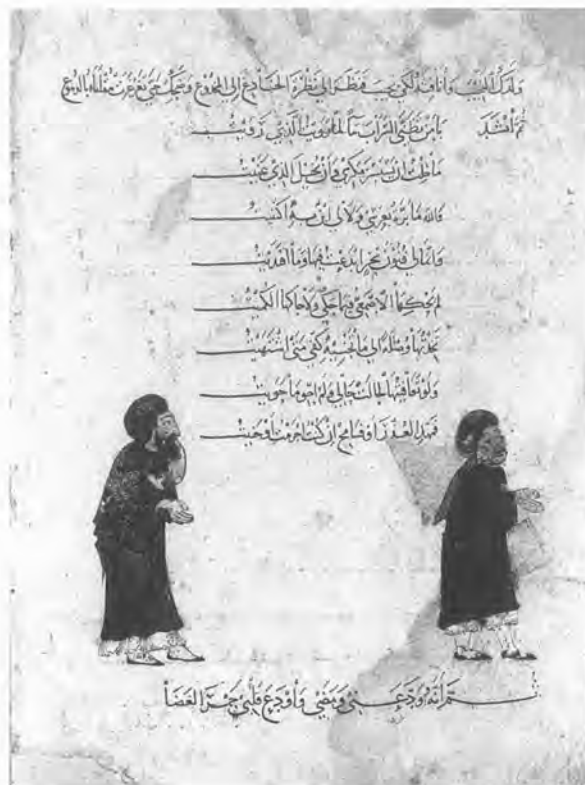 ولدك النجيب وأنافثه لكي يجيب فنظر إلي نظرة الخادع إلى المخدوع وضحك حتى تغرغرت مقلتاه بالدموع
ثم أنشد يا من تظنى السراب ماء لما رويت الذي رويت
ما خلت أن يستسر مكري وأن يخيل الذي عنيت
والله ما برة بعرسي ولا لي ابن به اكتنيت
وإنما لي فنون سحر ابدعت فيها وما اقتديت
لم يحكها الأصمعي فيما حكى ولا حاكها الكميت
تخذتها وصلة إلى ما تجنيه كفي متى اشتهيت
ولو تعافيتها لحالت حالي ولم أحو ما حويت
فمهد العذر أو فسامح إن كنت أجرمت أو جنيت
ثم إنه ودعني ومضى وأودع قلبي جمر الغضا